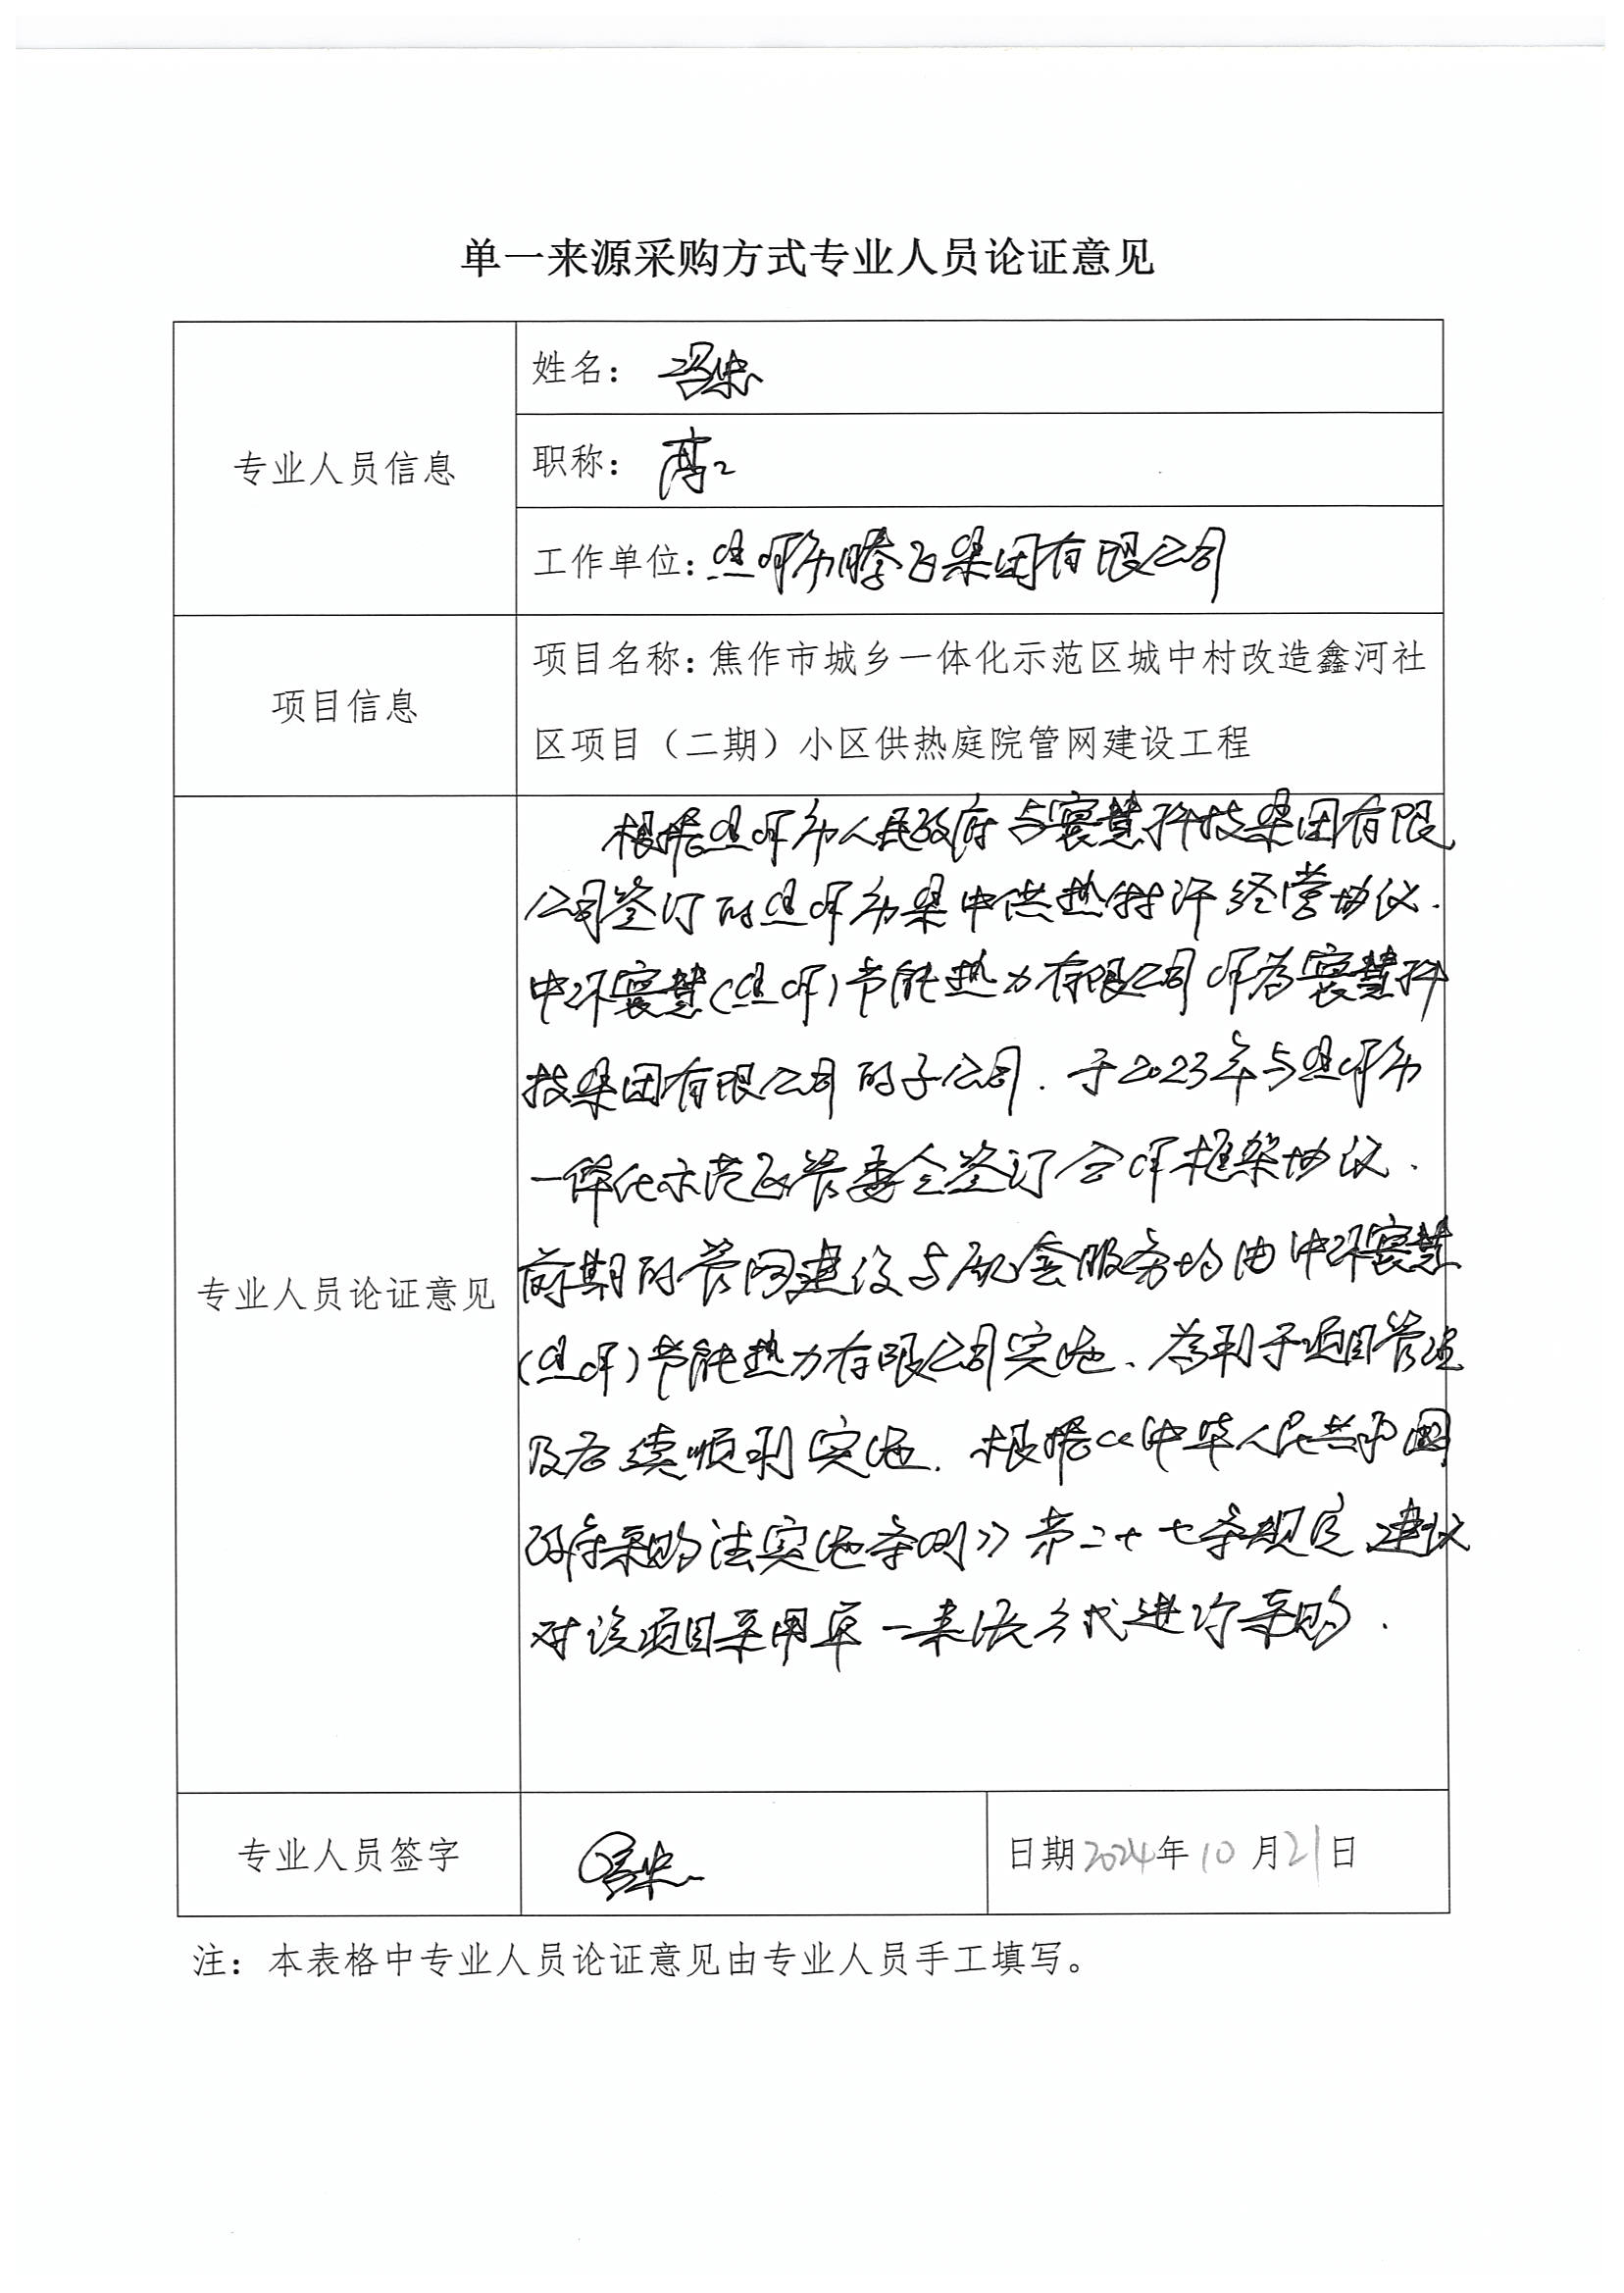 单一来源采购方式专业人员论证意见
专业人员信息
姓名：
职称：高工
工作单位：焦作市腾飞集团有限公司
项目信息
项目名称：焦作市城乡一体化示范区城中村改造鑫河社
区项目（二期）小区供热庭院管网建设工程
专业人员论证意见
根据焦作市人民政府与寰慧科技集团有限
公司签订的焦作市集中供热特许经营协议.
中环寰慧(焦作)节能热力有限公司作为寰慧科
技集团有限公司的子公司.于2023年与焦作市
一体化示范区管委会签订合作框架协议、
前期的管网建设与配套服务均由中环寰慧
(焦作)节能热力有限公司实施、为利于项目管理
及后续顺利实施.根据《中华人民共和国
政府采购法实施条例》第二十七条规定,建议
对该项目采用单一来源方式进行采购.
专业人员签字
日期2024年10月21日
注：本表格中专业人员论证意见由专业人员手工填写。